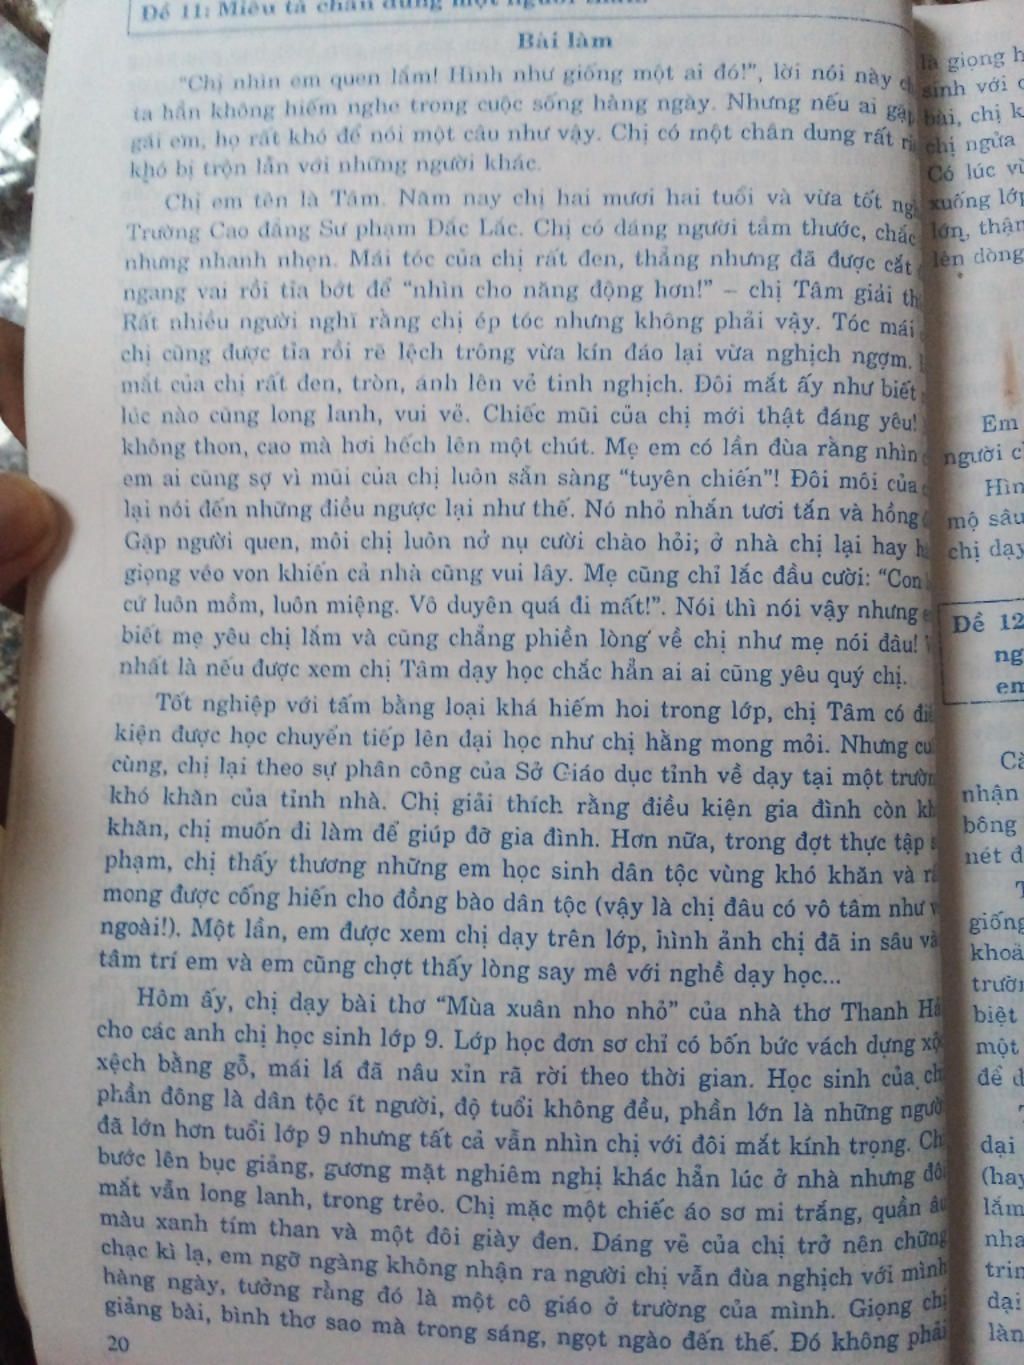 Đề 11: Miêu tả chân dung một người thân.
Bài làm
"Chị nhìn em quen lắm! Hình như giống một ai đó!", lời nói này
ta hẳn không hiếm nghe trong cuộc sống hàng ngày. Nhưng nếu ai gặp
gái em, họ rất khó để nói một câu như vậy. Chị có một chân dung rất
khó bị trộn lẫn với những người khác.
Chị em tên là Tâm. Năm nay chị hai mươi hai tuổi và vừa tốt
Trường Cao đẳng Sư phạm Đắc Lắc. Chị có dáng người tầm thước, chắc
nhưng nhanh nhẹn. Mái tóc của chị rất đen, thẳng nhưng đã được cắt
ngang vai rồi tỉa bớt để "nhìn cho năng động hơn!" – chị Tâm giải
Rất nhiều người nghĩ rằng chị ép tóc nhưng không phải vậy. Tóc mái
chị cũng được tỉa rồi rẽ lệch trông vừa kín đáo lại vừa nghịch ngợm.
mắt của chị rất đen, tròn, ánh lên vẻ tinh nghịch. Đôi mắt ấy như biết
lúc nào cũng long lanh, vui vẻ. Chiếc mũi của chị mới thật đáng yêu!
không thon, cao mà hơi hếch lên một chút. Mẹ em có lần đùa rằng nhìn
em ai cũng sợ vì mũi của chị luôn sẵn sàng "tuyên chiến"! Đôi môi của
lại nói đến những điều ngược lại như thế. Nó nhỏ nhắn tươi tắn và hồng
Gặp người quen, môi chị luôn nở nụ cười chào hỏi; ở nhà chị lại hay
giọng véo von khiến cả nhà cũng vui lây. Mẹ cũng chỉ lắc đầu cười: "Con
cứ luôn mồm, luôn miệng. Vô duyên quá đi mất!". Nói thì nói vậy nhưng
biết mẹ yêu chị lắm và cũng chẳng phiền lòng về chị như mẹ nói đâu!
nhất là nếu được xem chị Tâm dạy học chắc hẳn ai ai cũng yêu quý chị.
Tốt nghiệp với tấm bằng loại khá hiếm hoi trong lớp, chị Tâm có
kiện được học chuyển tiếp lên đại học như chị hằng mong mỏi. Nhưng
cùng, chị lại theo sự phân công của Sở Giáo dục tỉnh về dạy tại một trườn
khó khăn của tỉnh nhà. Chị giải thích rằng điều kiện gia đình còn
khăn, chị muốn đi làm để giúp đỡ gia đình. Hơn nữa, trong đợt thực tập
phạm, chị thấy thương những em học sinh dân tộc vùng khó khăn và
mong được cống hiến cho đồng bào dân tộc (vậy là chị đâu có vô tâm như
ngoài!). Một lần, em được xem chị dạy trên lớp, hình ảnh chị đã in sâu
tâm trí em và em cũng chợt thấy lòng say mê với nghề dạy học...
Hôm ấy, chị dạy bài thơ "Mùa xuân nho nhỏ" của nhà thơ Thanh Hả
cho các anh chị học sinh lớp 9. Lớp học đơn sơ chỉ có bốn bức vách dựng xộ
xệch bằng gỗ, mái lá đã nâu xỉn rã rời theo thời gian. Học sinh của chị
phần đông là dân tộc ít người, độ tuổi không đều, phần lớn là những người
đã lớn hơn tuổi lớp 9 nhưng tất cả vẫn nhìn chị với đôi mắt kính trọng. Chị
bước lên bục giảng, gương mặt nghiêm nghị khác hẳn lúc ở nhà nhưng đôi
mắt vẫn long lanh, trong trẻo. Chị mặc một chiếc áo sơ mi trắng, quần âu
màu xanh tím than và một đôi giày đen. Dáng vẻ của chị trở nên chững
chạc kì lạ, em ngỡ ngàng không nhận ra người chị vẫn đùa nghịch với mình
hàng ngày, tưởng rằng đó là một cô giáo ở trường của mình. Giọng chị
giảng bài, bình thơ sao mà trong sáng, ngọt ngào đến thế. Đó không phải
20
là giọng
sinh với
bài, chị
chị ngửa
Có lúc
xuống lớp
lớn, thận
lên dòng
Em
người
Hìn
mộ sâu
chị dạy
Đề 12
ng
em
nhận
bông
nét
giống
khoả
trườ
biệt
một
để
dại
(hay
lắm
nha
trin
dại
làn